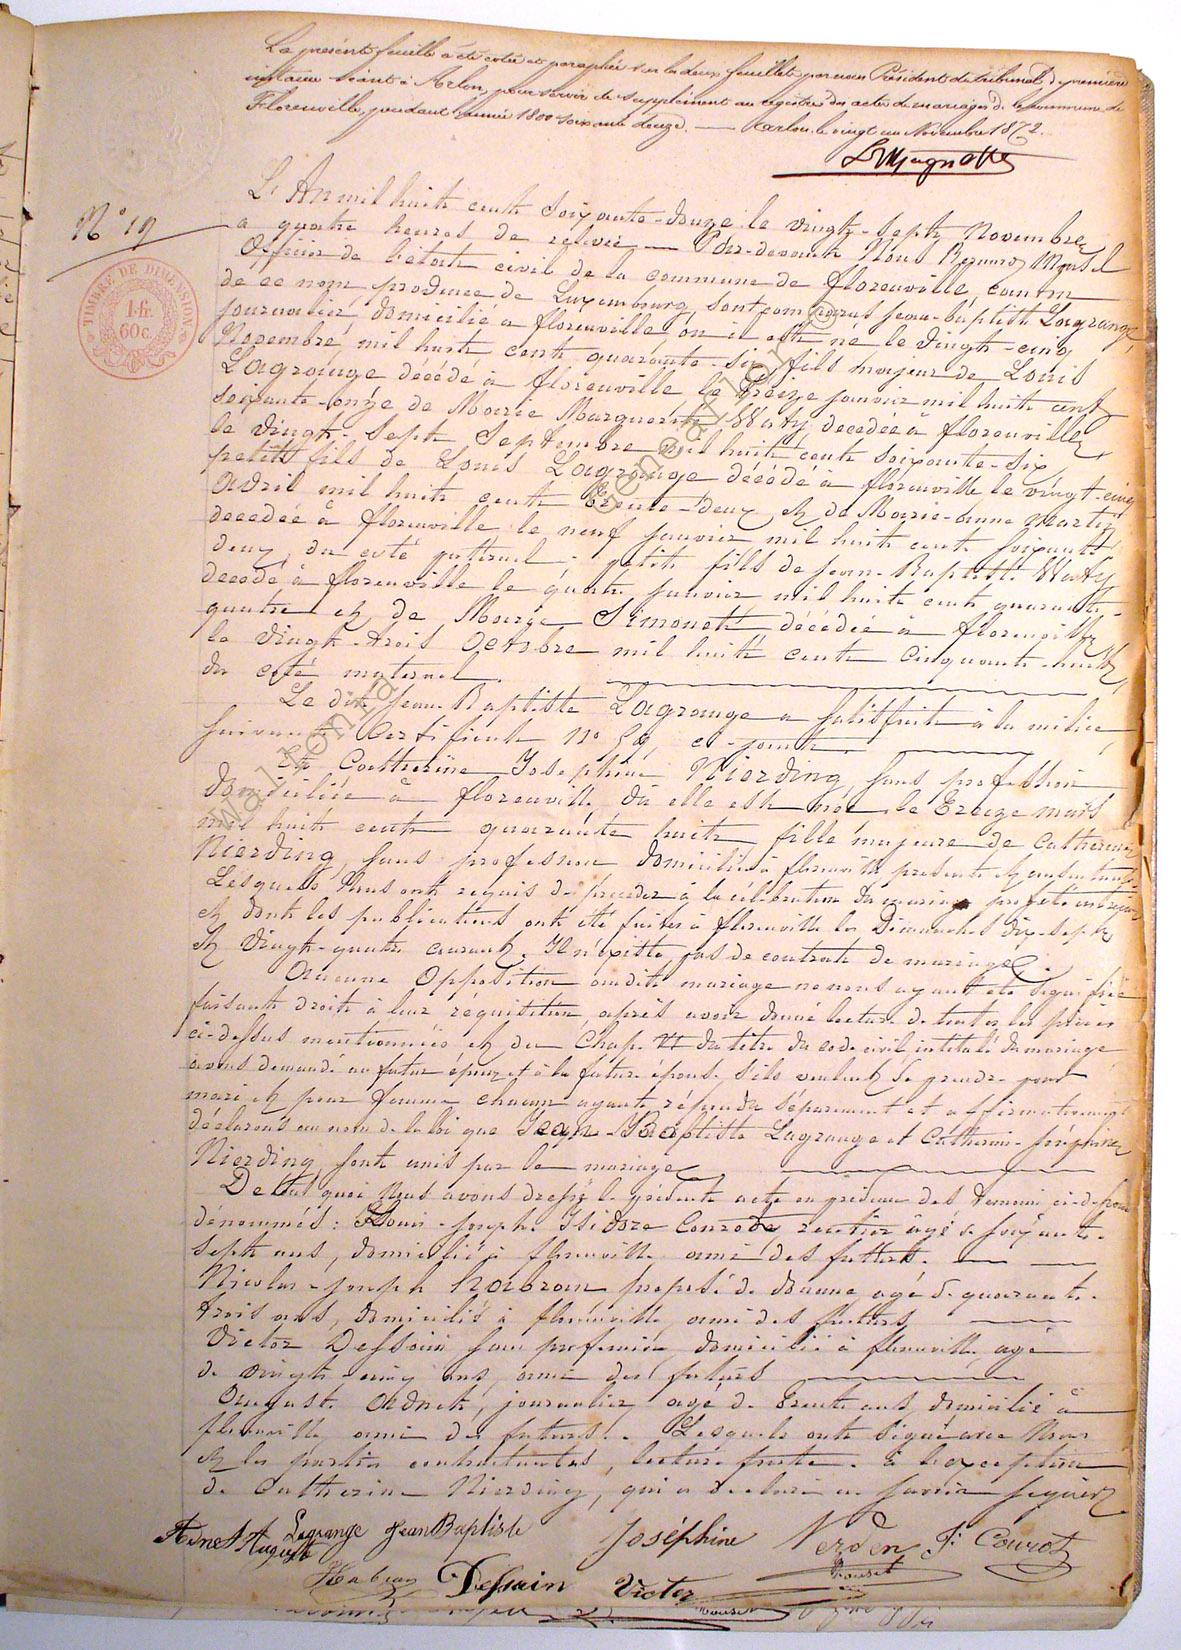 La présente feuille a été cotée et paraphée sur les deux feuillets par nous Président du tribunal de première
instance séant à Arlon, pour servir de supplément au registre des actes de mariages de la commune de
Florenville, pendant l'année 1800 soixante douze. — Arlon, le vingt un Novembre 1872.
N° 19
TIMBRE DE DIMENSION
1 fr.
60 c.
L'An mil huit cent Soixante-douze le vingt-sept Novembre
a quatre heures de relevée — Par-devant Nous Bernard
Officier de l'etat civil de la commune de florenville, canton
de ce nom province de Luxembourg, sont comparus Jean-baptiste Lagrange
journalier, domicilié a florenville où il est né le vingt-cinq
Novembre mil huit cent quarante-six, fils majeur de Louis
Lagrange décédé à florenville le treize janvier mil huit cent
soixante-onze de Marie Marguerite Waty décédée à florenville
le vingt-sept Septembre mil huit cent soixante-six
petit fils de Louis Lagrange décédé à florenville le vingt-cinq
avril mil huit cent trente-deux, et de Marie-anne
décédée à florenville le neuf janvier mil huit cent soixante
deux, du coté patternel - petit fils de Jean-Baptiste Waty
décédé à florenville le quatre janvier mil huit cent quarante-
quatre et de Marie Simonet décédée à florenville
le vingt-trois Octobre mil huit cent cinquante-huit,
du coté maternel.
Le dit Jean-Baptiste Lagrange a satisfait à la milice,
suivant Certificat N° 59, ci-joint.
Et Catherine Josephine Nierding, sans profession
domiciliée à florenville où elle est née le treize mars
mil huit cent quarante huit fille majeure de Catherine
Nierding, sans profession domiciliée à florenville présente et consentante.
Lesquels Nous ont requis de procéder à la célébration du mariage projeté entr'eux
et dont les publications ont été faites à florenville les Dimanches dix-sept
et vingt-quatre courant. Il n'existe pas de contrat de mariage.
Aucune Opposition audit mariage ne nous ayant été signifiée
faisant droit à leur réquisition, après avoir donné lecture de toutes les pièces
ci-dessus mentionnées et du Chap. VI du titre du code civil intitulé du mariage
avons demandé au futur époux et à la future épouse s'ils veulent se prendre pour
mari et pour femme chacun ayant répondu séparément et affirmativement
déclarons au nom de la loi que Jean-Baptiste Lagrange et Catherine-Joséphine
Nierding sont unis par le mariage.
De tout quoi Nous avons dressé le présente acte en présence des temoins ci-dessous
dénommés: Louis-Joseph Isidore rentier âgé de soixante-
sept ans, domicilié à florenville ami des futurs.
Nicolas-Joseph Habran préposé de douane, agé de quarante-
trois ans, domicilié à florenville, ami des futurs,
Victor Dessain sans profession, domicilié à florenville, agé
de vingt cinq ans, ami des futurs
Auguste Adnet, journalier, agé de trente ans, domicilié à
florenville ami des futurs. Lesquels ont signé avec Nous
et les parties contractantes, lecture faite. à l'exception
de Catherine Nierding, qui a déclaré ne savoir signer.
Adnet Auguste
Lagrange Jean Baptiste
Joséphine Nerden
Habran
Dessain Victor
walhona
Genearlon ©